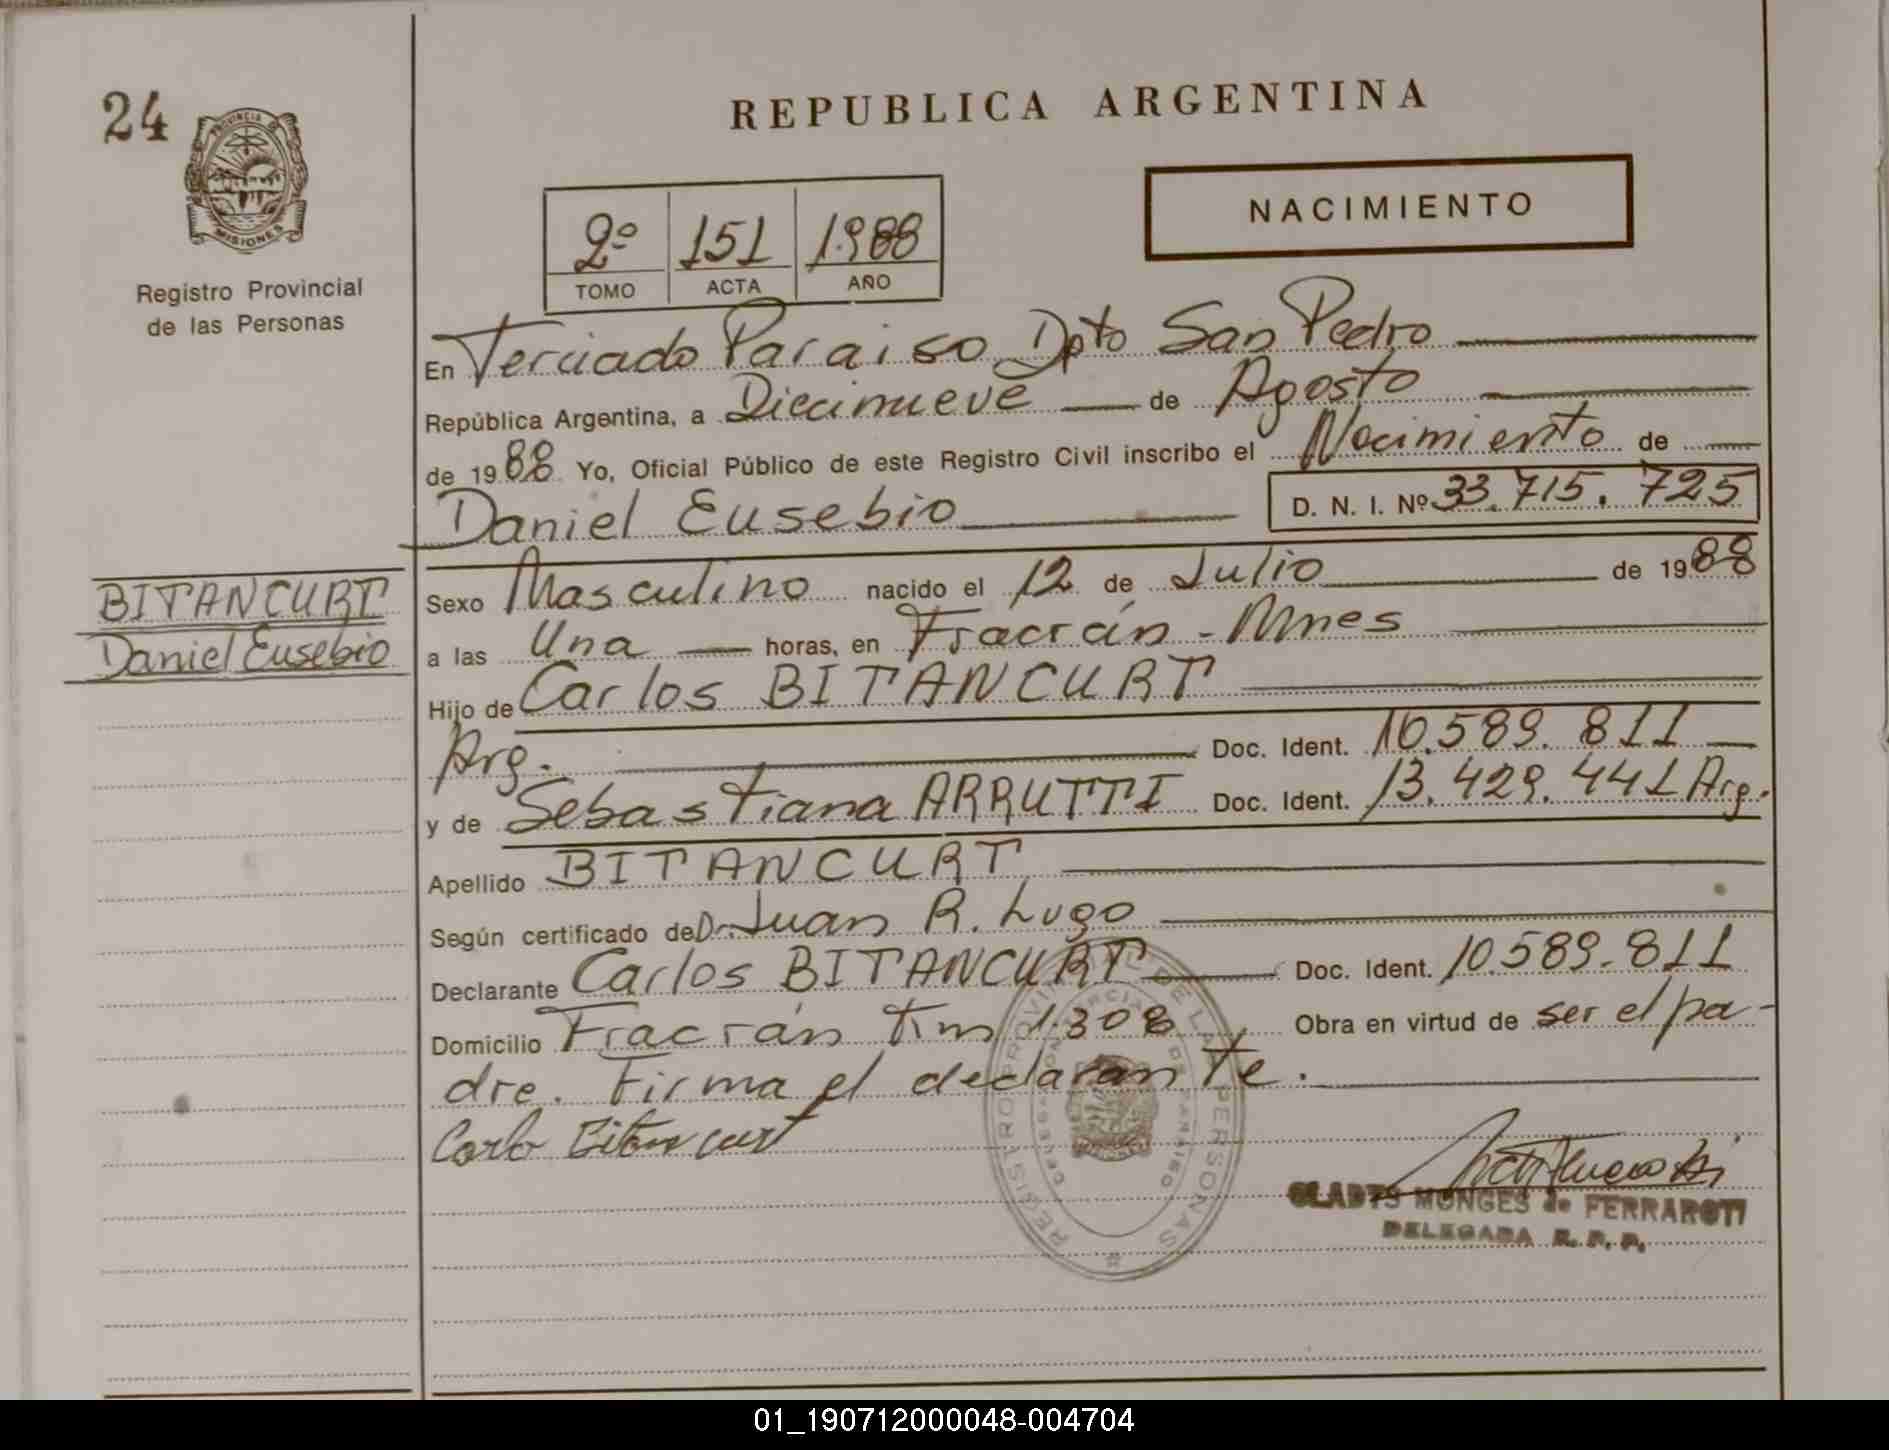 24
REPUBLICA ARGENTINA
PROVINCIA DE
MISIONES
Registro Provincial
de las Personas
2º 151 1.988
TOMO ACTA AÑO
NACIMIENTO
En Terciado Paraiso Dpto San Pedro
República Argentina, a Diecinueve de Agosto
de 1988 Yo, Oficial Público de este Registro Civil inscribo el Nacimiento de
Daniel Eusebio D. N. I. Nº 33.715.725
BITANCURT
Daniel Eusebio
Sexo Masculino nacido el 12 de Julio de 1988
a las Una horas, en Fracrán - Mnes
Hijo de Carlos BITANCURT
Arg. Doc. Ident. 10.589.811
y de Sebastiana ARRUTTI Doc. Ident. 13.429.441 Arg.
Apellido BITANCURT
Según certificado de Dr. Juan R. Lugo
Declarante Carlos BITANCURT Doc. Ident. 10.589.811
Domicilio Fracrán Km 1.308 Obra en virtud de ser el pa-
dre. Firma el declarante.
REGISTRO PROVINCIAL DE LAS PERSONAS
GLADYS MONGES de FERRAROTI
DELEGADA R. P. P.
01_190712000048-004704